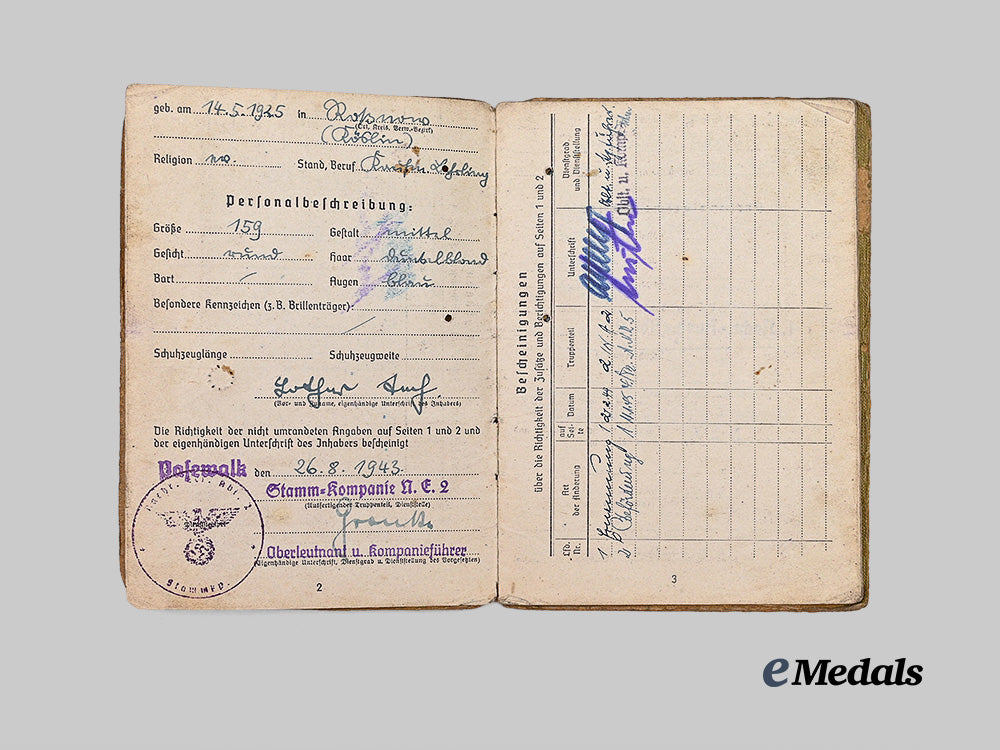 geb. am 14.5.1925 in Roßnow
(Ort, Kreis, Verw.-Bezirk)
(Köslin)
Religion ev. Stand, Beruf Kaufm. Lehrling
Personalbeschreibung:
Größe 159 Gestalt mittel
Gesicht rund Haar dunkelblond
Bart / Augen blau
Besondere Kennzeichen (z.B. Brillenträger):
Schuhzeuglänge Schuhzeugweite
Lothar
(Vor- und Zuname, eigenhändige Unterschrift des Inhabers)
Die Richtigkeit der nicht umrandeten Angaben auf Seiten 1 und 2 und
der eigenhändigen Unterschrift des Inhabers bescheinigt
Pasewalk den 26.8.1943
Stamm-Kompanie N. E. 2
(Ausfertigender Truppenteil, Dienststelle)
Oberleutnant u. Kompanieführer
(Eigenhändige Unterschrift, Dienstgrad u. Dienststellung des Vorgesetzten)
2
Bescheinigungen
über die Richtigkeit der Zusätze und Berichtigungen auf Seiten 1 und 2
Lfd. Nr.
Art der Änderung
auf Seite
Datum
Truppenteil
Unterschrift
Dienstgrad und Dienststellung
1 Ernennung 1
2 Beförderung 1
Oblt. u.
3
eMedals